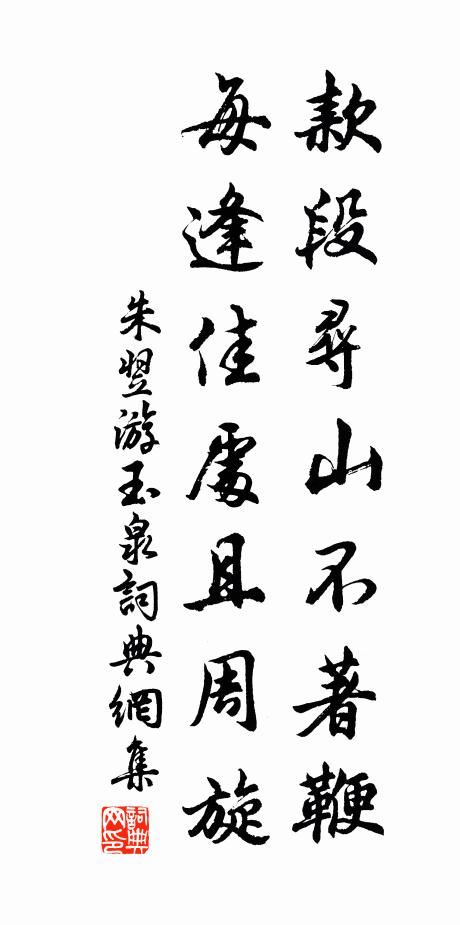 款段尋山不著鞭
每逢佳處且周旋
朱翌游玉泉詞典網集
詞典网印